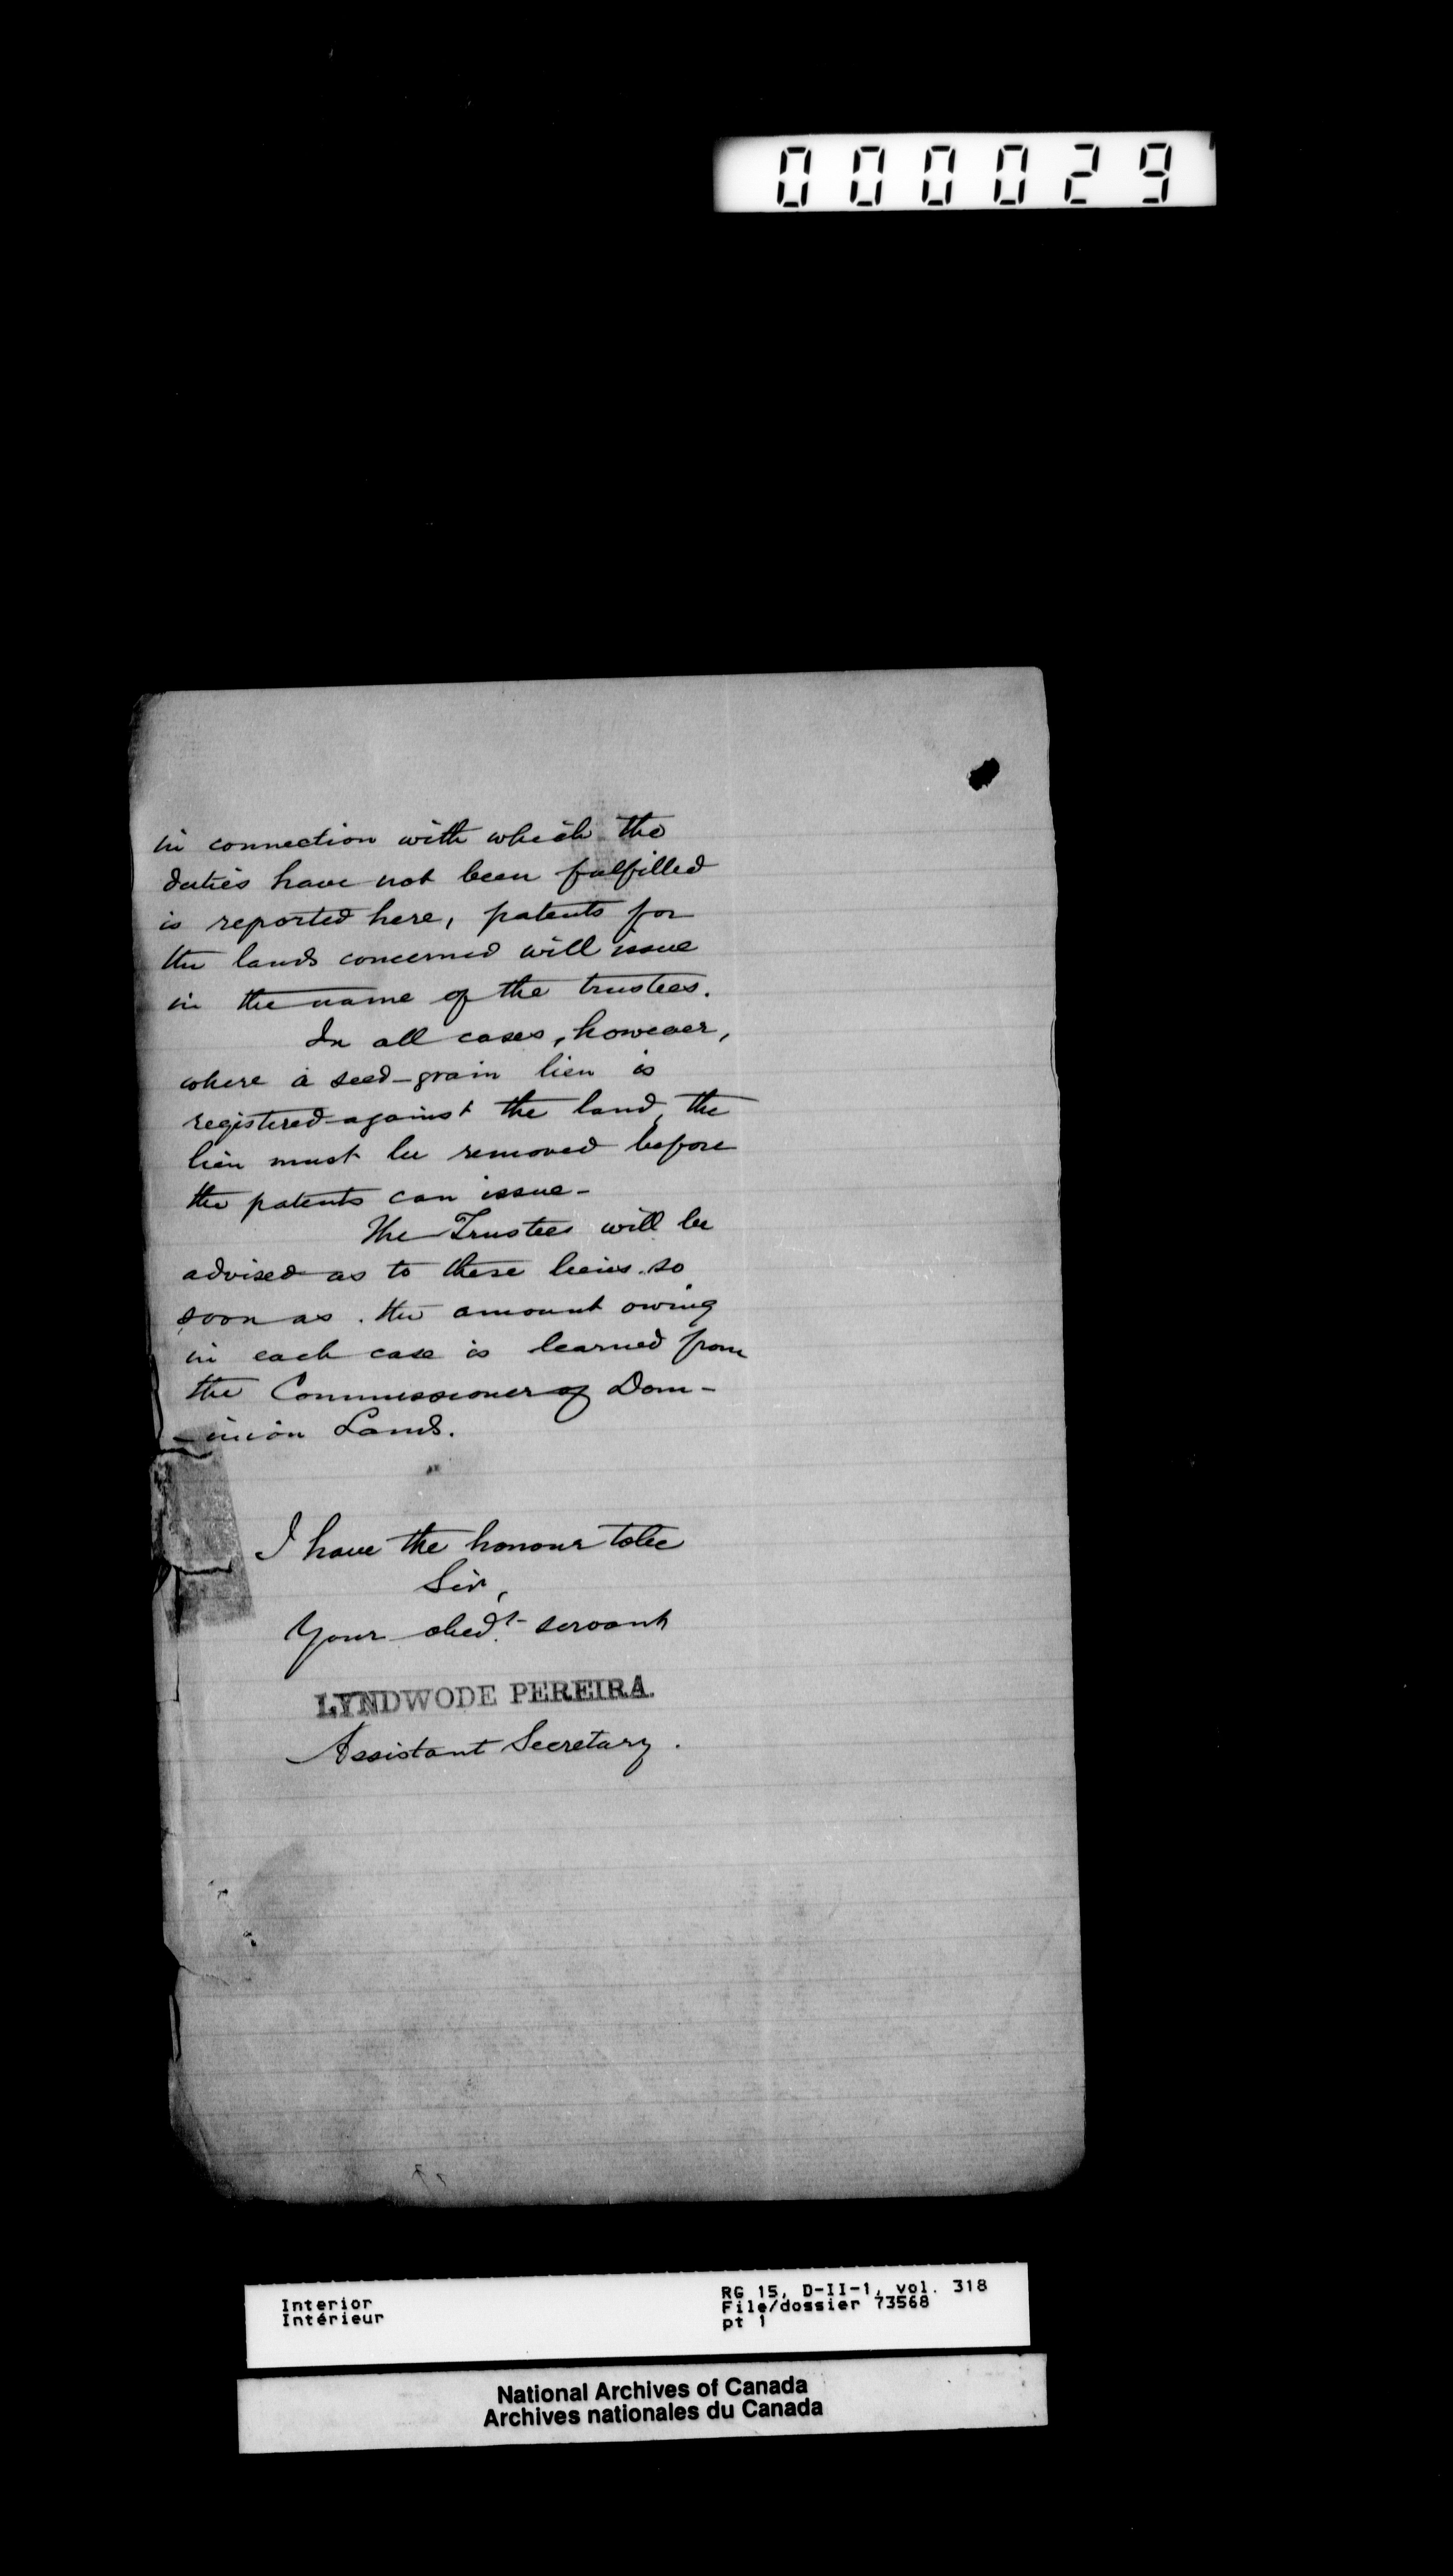 000029
in connection with which the
duties have not been fulfilled
is reported here, patents for
the lands concerned will issue
in the name of the trustees.
In all cases, however,
where a seed-grain lien is
registered against the land, the
lien must be removed before
the patents can issue-
The Trustees will be
advised as to these liens so
soon as the amount owing
in each case is learned from
the Commissioner of Dom-
-inion Lands.
I have the honour to be
Sir,
Your obedt. servant
LYNDWODE PEREIRA.
Assistant Secretary.
Interior RG 15, D-II-1, vol. 318
Intérieur File/dossier 73568
pt 1
National Archives of Canada
Archives nationales du Canada